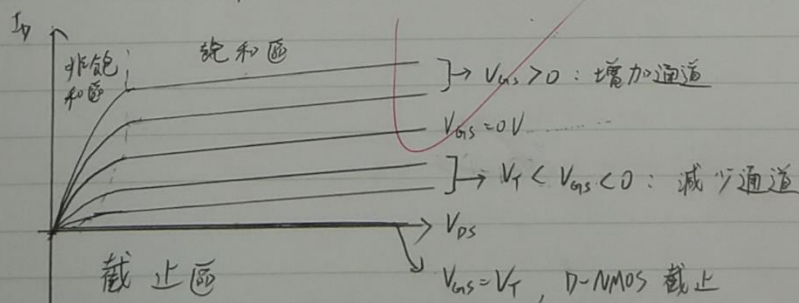 I_D
非飽
和區
飽和區
]→ V_GS > 0 : 增加通道
V_GS = 0V
]→ V_T < V_GS < 0 : 減少通道
V_DS
截止區
V_GS = V_T , D-NMOS 截止